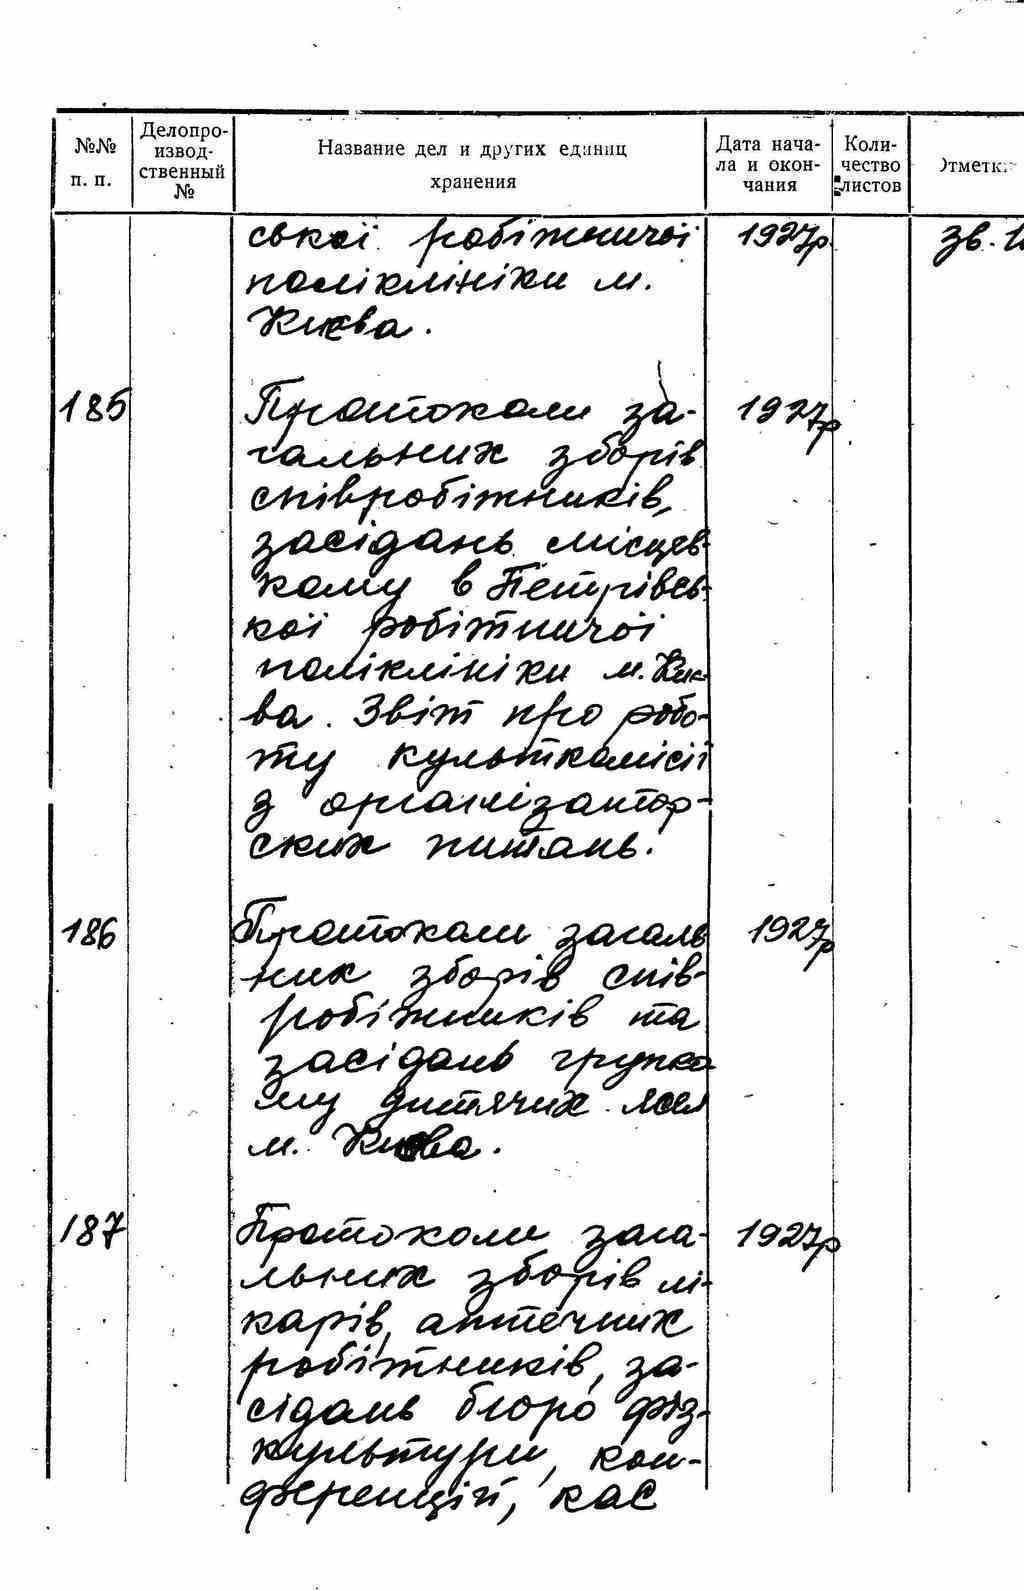 №№ п. п.
Делопро-
извод-
ственный
№
Название дел и других единиц
хранения
Дата нача-
ла и окон-
чания
Коли-
чество
листов
Отметк
ської робітничої 1927р. зв.
поліклініки м.
Києва.
185 Протоколи за- 1927р.
гальних зборів
співробітників,
засідань місцев-
кому в Петрівсь-
кої робітничої
поліклініки м. Киє-
ва. Звіт про робо-
ту культкомісії
з організатор-
ских питань.
186 Протоколи загаль 1927р
них зборів спів-
робітників та
засідань групко
му дитячих ясел
м. Києва.
187 Протоколи зага- 1927р
льних зборів лі-
карів, аптечних
робітників, за-
сідань бюро фіз-
культури, кон-
ференцій, кас